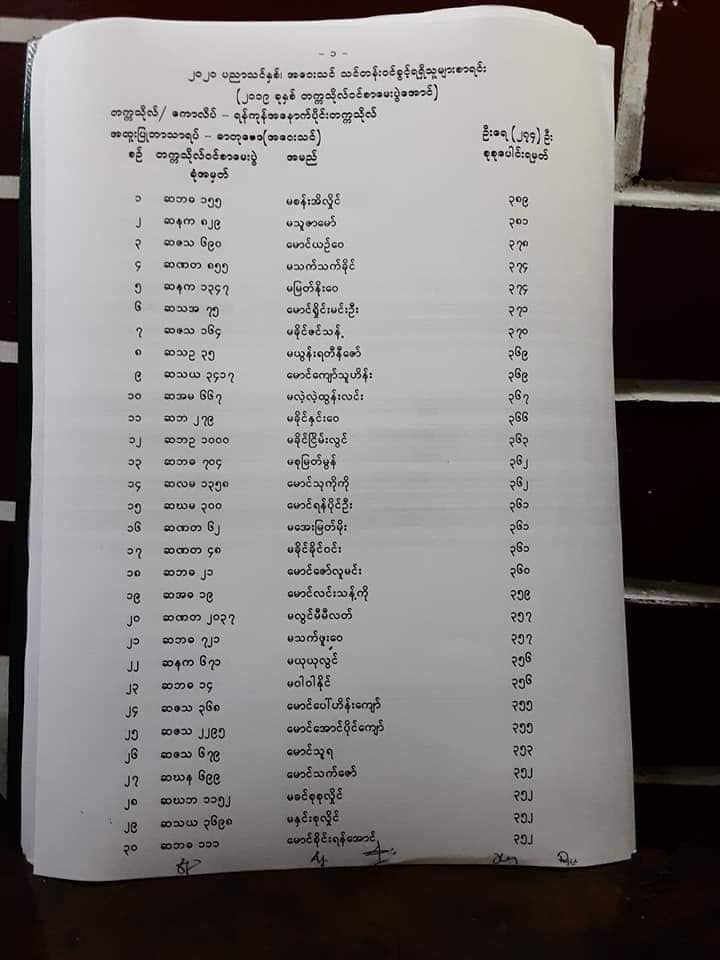 - ၁ -
၂၀၂၀ ပညာသင်နှစ်၊ အဝေးသင် သင်တန်းဝင်ခွင့်ရရှိသူများစာရင်း
(၂၀၁၉ ခုနှစ် တက္ကသိုလ်ဝင်စာမေးပွဲအောင်)
တက္ကသိုလ်/ ကောလိပ် - ရန်ကုန်အနောက်ပိုင်းတက္ကသိုလ်
အထူးပြုဘာသာရပ် - ဓာတုဗေဒ(အဝေးသင်) ဦးရေ (၂၇၄) ဦး
စဉ် တက္ကသိုလ်ဝင်စာမေးပွဲ အမည် စုစုပေါင်းရမှတ်
ခုံအမှတ်
၁ ဆဘဓ ၁၅၅ မစန်းအိလှိုင် ၃၈၉
၂ ဆနက ၈၂၉ မသူဇာမော် ၃၈၁
၃ ဆဇသ ၆၉၀ မောင်ယဉ်ဝေ ၃၇၈
၄ ဆဏတ ၈၅၅ မသက်သက်ခိုင် ၃၇၄
၅ ဆနက ၁၃၄၇ မမြတ်နိုးဝေ ၃၇၄
၆ ဆသအ ၇၅ မောင်ရှိုင်းမင်းဦး ၃၇၁
၇ ဆဇသ ၁၆၄ မခိုင်ဇင်သန့် ၃၇၀
၈ ဆသဥ ၃၅ မယွန်းရတီနီဇော် ၃၆၉
၉ ဆသယ ၃၄၁၇ မောင်ကျော်သူဟိန်း ၃၆၉
၁၀ ဆအမ ၆၆၇ မလဲ့လဲ့ထွန်းလင်း ၃၆၇
၁၁ ဆဘ ၂၇၉ မခိုင်နှင်းဝေ ၃၆၆
၁၂ ဆဘဥ ၁၀၀၀ မခိုင်ငြိမ်းလွင် ၃၆၃
၁၃ ဆဘဓ ၇၀၄ မစုမြတ်မွန် ၃၆၂
၁၄ ဆလမ ၁၃၅၈ မောင်သုကိုကို ၃၆၂
၁၅ ဆဃမ ၃၀၀ မောင်ရန်ပိုင်ဦး ၃၆၁
၁၆ ဆဏတ ၆၂ မအေးမြတ်မိုး ၃၆၁
၁၇ ဆဏတ ၄၈ မခိုင်ခိုင်ဝင်း ၃၆၁
၁၈ ဆဘဓ ၂၁ မောင်ဇော်လူမင်း ၃၆၀
၁၉ ဆအဓ ၁၉ မောင်လင်းသန့်ကို ၃၅၉
၂၀ ဆဏတ ၂၀၃၇ မလွင်မီမီလတ် ၃၅၇
၂၁ ဆဘဓ ၇၂၁ မသက်ဖူးဝေ ၃၅၇
၂၂ ဆနက ၆၇၁ မယုယုလွင် ၃၅၆
၂၃ ဆဘဓ ၁၄ မဝါဝါနိုင် ၃၅၆
၂၄ ဆဇသ ၃၆၈ မောင်ပေါ်ဟိန်းကျော် ၃၅၅
၂၅ ဆဇသ ၂၂၉၅ မောင်အောင်ပိုင်ကျော် ၃၅၅
၂၆ ဆဇသ ၆၇၉ မောင်သူရ ၃၅၃
၂၇ ဆဃန ၆၉၉ မောင်သက်ဇော် ၃၅၂
၂၈ ဆဃဘ ၁၁၅၂ မခင်စုစုလှိုင် ၃၅၂
၂၉ ဆသယ ၃၆၉၈ မနှင်းစုလှိုင် ၃၅၂
၃၀ ဆဘဓ ၁၁၁ မောင်စိုင်းရန်အောင် ၃၅၂